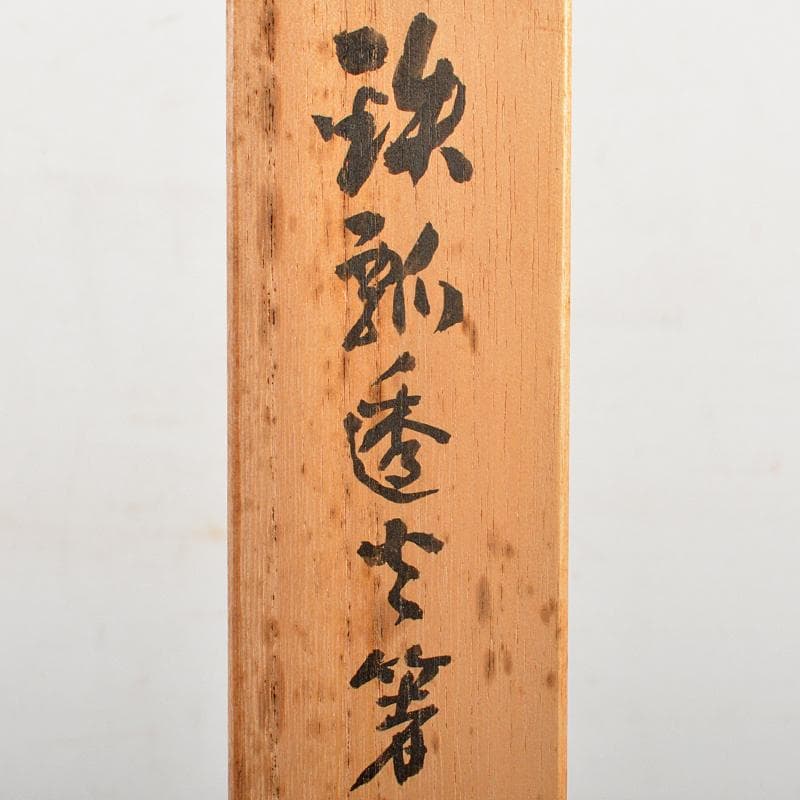 鉄瓢透火箸